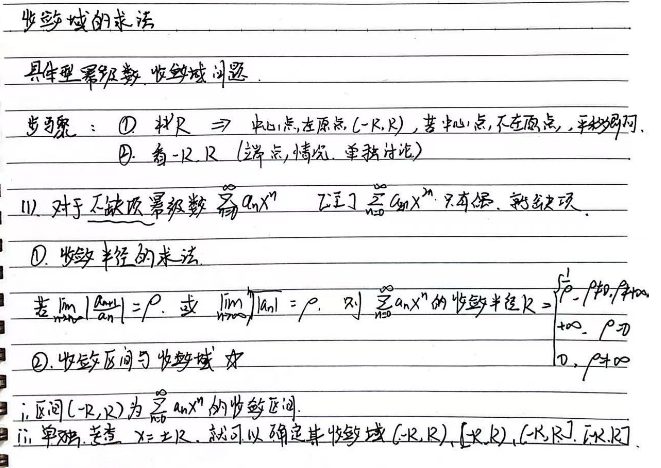 收敛域的求法
具体型幂级数 收敛域问题.
步骤: ① 求R ⇒ 中心点在原点 (-R,R), 若中心点不在原点, 平移即可.
②. 看-R, R (端点情况 单独讨论)
(1). 对于不缺项幂级数 ∑_{n=0}^{∞} aₙxⁿ [注] ∑_{n=0}^{∞} a₂ₙx²ⁿ 只有偶. 就缺项.
①. 收敛半径的求法.
若 lim_{n→∞} |aₙ₊₁/aₙ| = ρ. 或 lim_{n→∞} ⁿ√|aₙ| = ρ. 则 ∑_{n=0}^{∞} aₙxⁿ 的收敛半径 R = { 1/ρ, ρ≠0, ρ≠+∞
+∞. ρ=0
0, ρ=+∞
②. 收敛区间与收敛域 ☆
i, 区间 (-R,R) 为 ∑_{n=0}^{∞} aₙxⁿ 的收敛区间.
ii, 单独考查 x=±R. 就可以确定其收敛域 (-R,R), [-R,R), (-R,R]. [-R,R].